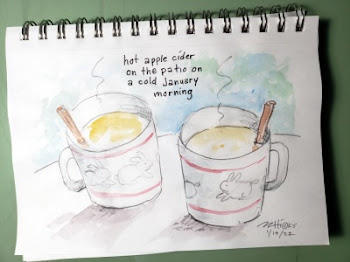 hot apple cider
on the patio on
a cold January
morning
1/10/22